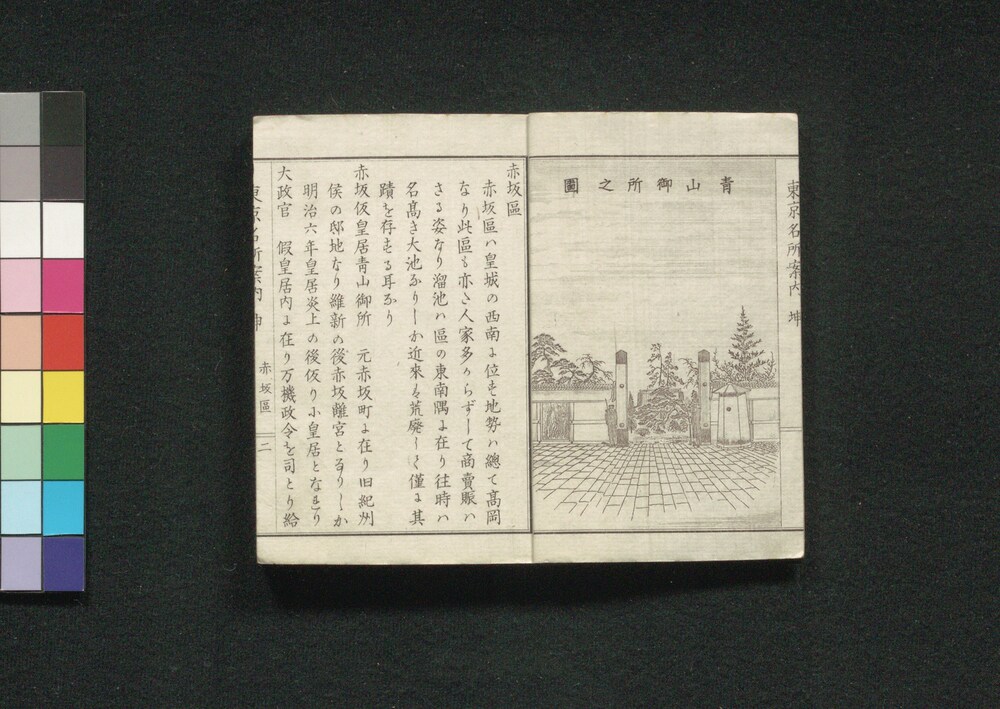 東京名所案内 坤
青山御所之圖
赤坂區
赤坂區ハ皇城の西南ょ位も地勢ハ總て高岡
なり此區も亦さ人家多からずして商賣賑ハ
さる姿なり溜池ハ區の東南隅ょ在り往時ハ
名髙き大池なりしか近來ハ荒廃して僅ょ其
蹟を存もる耳なり
赤坂仮皇居青山御所 元赤坂町ょ在り旧紀州
侯の邸地なり維新の後赤坂離宮となりしか
明治六年皇居炎上の後仮り小皇居となれり
大政官 假皇居内ょ在り万機政令を司とり給
東京名所案内 坤
赤坂區
二